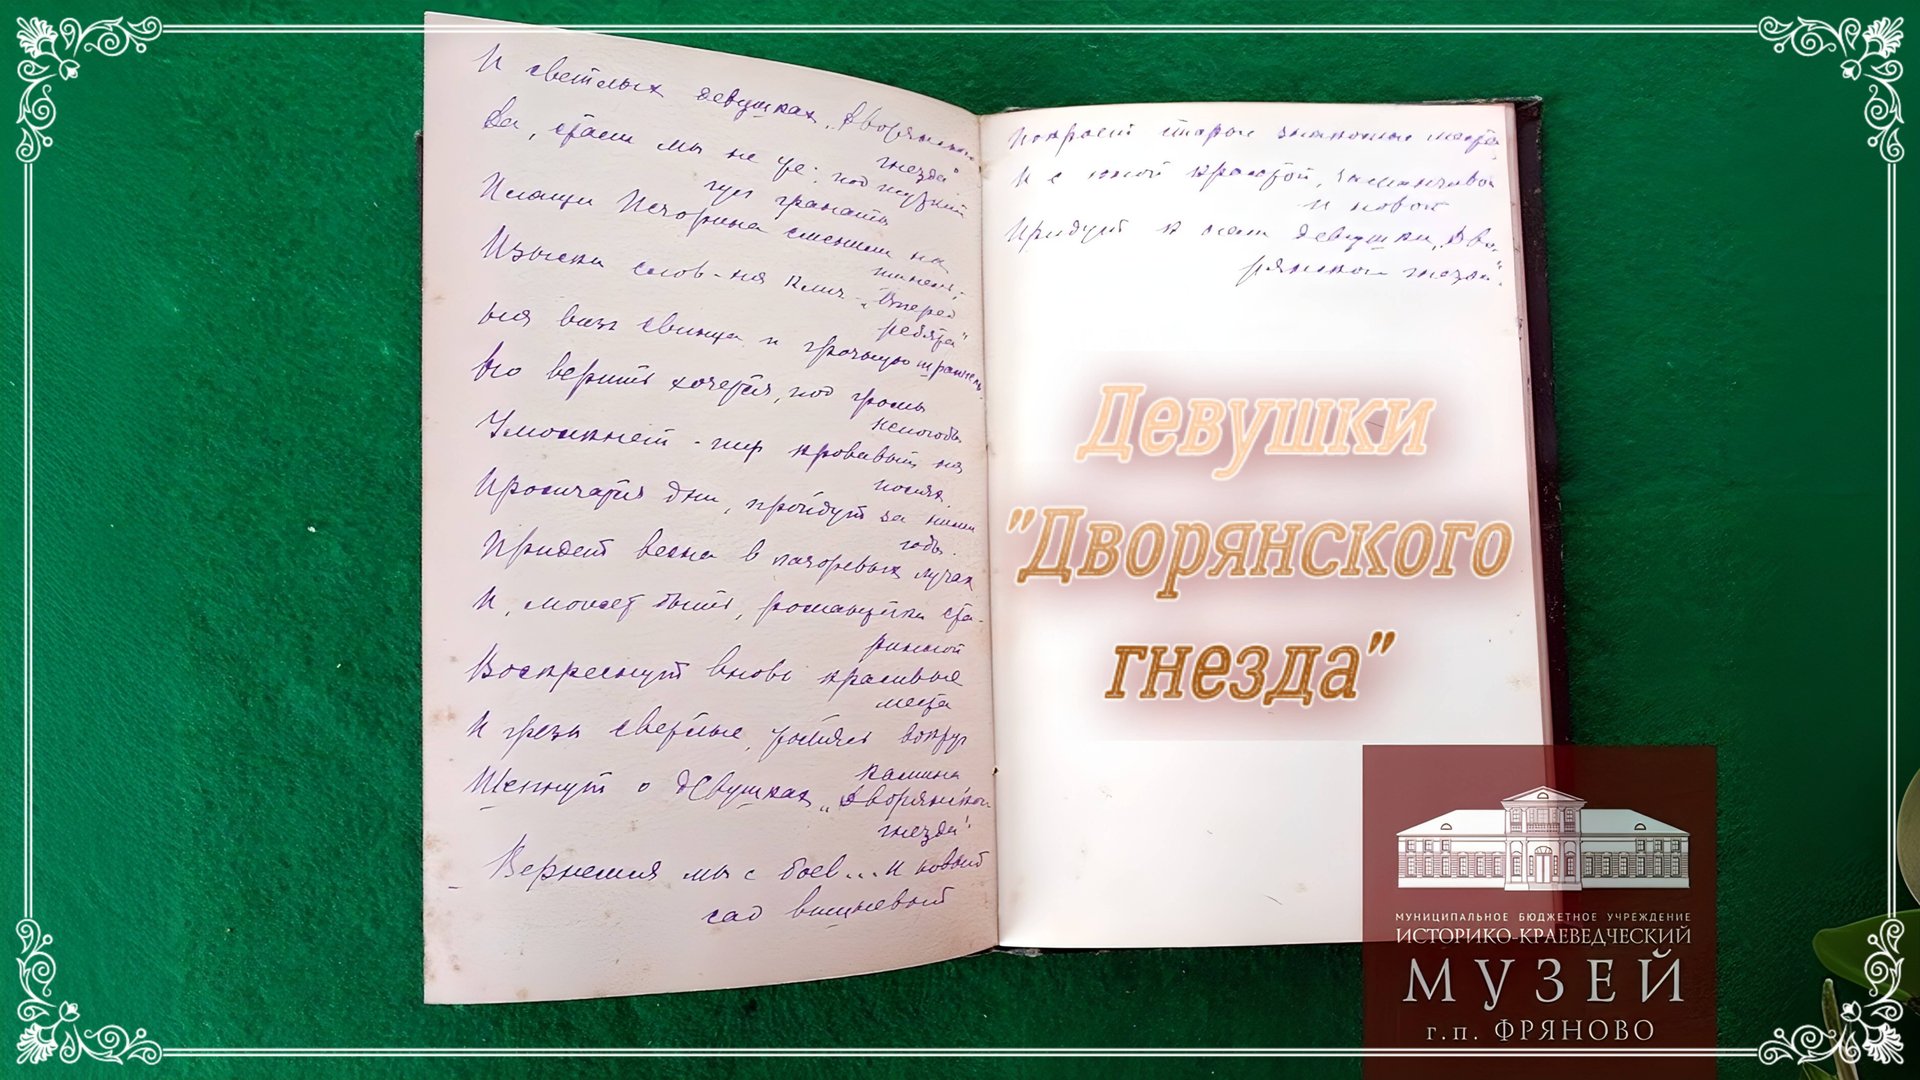 И светлых девушках „Дворянского
гнезда"
Да, стали мы не те: под музыку
гранаты
Плащи Печорина сменили на
шинель,
Изыски слов - на клич „Вперед
ребята"
свинца и грозную шрапнель
Но верить хочется, под громы
непогоды
Умолкнет - пир кровавый на
полях
Промчатся дни, пройдут за ними
годы.
Придет весна в лазоревых лучах
И, может быть, романтики ста-
ринной
Воскреснут вновь красивые
места
И грезы светлые, вокруг
камина
Шепнут о девушках „Дворянского
гнезда!
Вернемся мы с боев... И новый
сад вишневый
Покроет старые знакомые места
И с юной красотой, заманчивой
и новой
Придут к нам девушки „Дво-
рянского гнезда".
Девушки
"Дворянского
гнезда"
МУНИЦИПАЛЬНОЕ БЮДЖЕТНОЕ УЧРЕЖДЕНИЕ
ИСТОРИКО-КРАЕВЕДЧЕСКИЙ
МУЗЕЙ
г.п. ФРЯНОВО